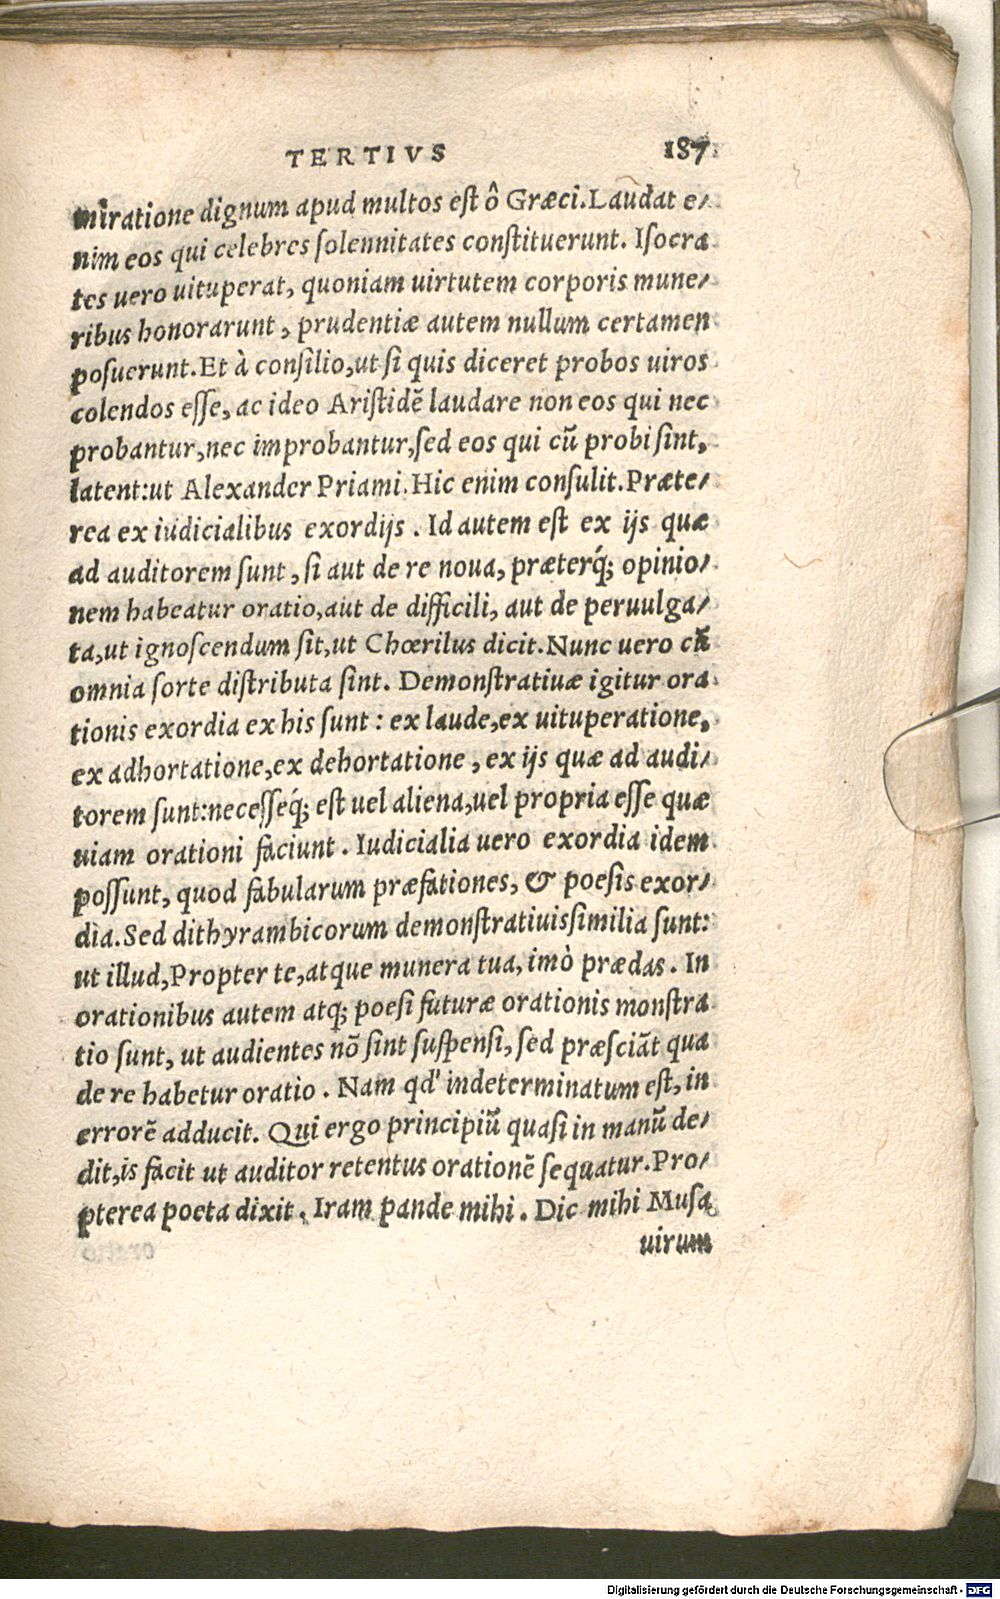 TERTIVS 187
miratione dignum apud multos est ô Græci. Laudat e/
nim eos qui celebres solennitates constituerunt. Isocra
tes uero uituperat, quoniam uirtutem corporis mune/
ribus honorarunt, prudentiæ autem nullum certamen
posuerunt. Et à consilio, ut si quis diceret probos uiros
colendos esse, ac ideo Aristidẽ laudare non eos qui nec
probantur, nec improbantur, sed eos qui cũ probi sint,
latent: ut Alexander Priami. Hic enim consulit. Præte/
rea ex iudicialibus exordijs. Id autem est ex ijs quæ
ad auditorem sunt, si aut de re noua, præterq́; opinio/
nem habeatur oratio, aut de difficili, aut de peruulga/
ta, ut ignoscendum sit, ut Chœrilus dicit. Nunc uero cũ
omnia sorte distributa sint. Demonstratiuæ igitur ora
tionis exordia ex his sunt: ex laude, ex uituperatione,
ex adhortatione, ex dehortatione, ex ijs quæ ad audi/
torem sunt: necesseq́; est uel aliena, uel propria esse quæ
uiam orationi faciunt. Iudicialia uero exordia idem
possunt, quod fabularum præfationes, & poesis exor/
dia. Sed dithyrambicorum demonstratiuis similia sunt:
ut illud, Propter te, atque munera tua, imò prædas. In
orationibus autem atq; poesi futuræ orationis monstra
tio sunt, ut audientes nõ sint suspensi, sed præsciãt qua
de re habetur oratio. Nam qd' indeterminatum est, in
errorẽ adducit. Qui ergo principiũ quasi in manũ de/
dit, is facit ut auditor retentus orationẽ sequatur. Pro/
pterea poeta dixit. Iram pande mihi. Dic mihi Musa
uirum
Digitalisierung gefördert durch die Deutsche Forschungsgemeinschaft - DFG